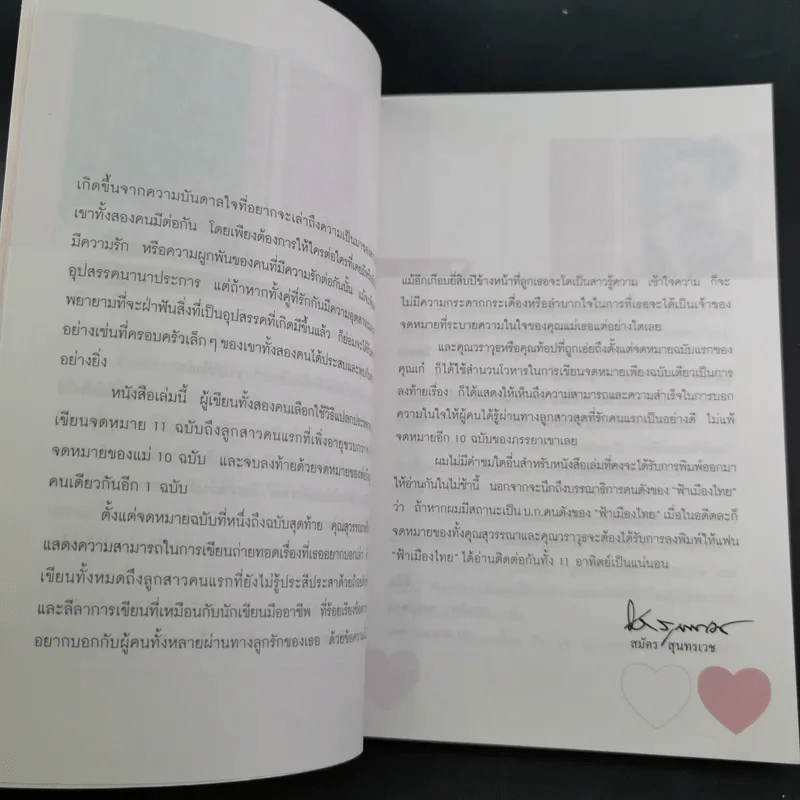 เกิดขึ้นจากความบันดาลใจที่อยากจะเล่าถึงความเป็นมา
เขาทั้งสองคนมีต่อกัน โดยเพียงต้องการให้ใครต่อใครที่เคย
มีความรัก หรือความผูกพันของคนที่มีความรักต่อกันนั้น
อุปสรรคนานาประการ แต่ถ้าหากทั้งคู่ที่รักกันมีความ
พยายามที่จะฝ่าฟันสิ่งที่เป็นอุปสรรคที่เกิดมีขึ้นแล้ว ก็ย่อมจะ
อย่างเช่นที่ครอบครัวเล็กๆ ของเขาทั้งสองคนได้ประสบและ
อย่างยิ่ง
หนังสือเล่มนี้ ผู้เขียนทั้งสองคนเลือกใช้วิธีแปลกประหลาด
เขียนจดหมาย 11 ฉบับถึงลูกสาวคนแรกที่เพิ่งอายุขวบกว่า
จดหมายของแม่ 10 ฉบับ และจบลงท้ายด้วยจดหมายของพ่อ
คนเดียวกันอีก 1 ฉบับ
ตั้งแต่จดหมายฉบับที่หนึ่งถึงฉบับสุดท้าย คุณสุวรรณา
แสดงความสามารถในการเขียนถ่ายทอดเรื่องที่เธออยากบอกเล่า
เขียนทั้งหมดถึงลูกสาวคนแรกที่ยังไม่รู้ประสีประสาด้วยถ้อย
และลีลาการเขียนที่เหมือนกับนักเขียนมืออาชีพ ที่ร้อยเรียง
อยากบอกกับผู้คนทั้งหลายผ่านทางลูกรักของเธอ ด้วยข้อความ
แม้อีกเกือบยี่สิบปีข้างหน้าที่ลูกเธอจะโตเป็นสาวรู้ความ เข้าใจความ ก็จะ
ไม่มีความกระดากกระเดื่องหรือลำบากใจในการที่เธอจะได้เป็นเจ้าของ
จดหมายที่ระบายความในใจของคุณแม่เธอแต่อย่างใดเลย
และคุณวราวุธหรือคุณท้อปที่ถูกเอ่ยถึงตั้งแต่จดหมายฉบับแรกของ
คุณเก๋ ก็ได้ใช้สำนวนโวหารในการเขียนจดหมายเพียงฉบับเดียวเป็นการ
ลงท้ายเรื่อง ก็ได้แสดงให้เห็นถึงความสามารถและความสำเร็จในการบอก
ความในใจให้ผู้คนได้รู้ผ่านทางลูกสาวสุดที่รักคนแรกเป็นอย่างดี ไม่แพ้
จดหมายอีก 10 ฉบับของภรรยาเขาเลย
ผมไม่มีคำชมใดอื่นสำหรับหนังสือเล่มที่คงจะได้รับการพิมพ์ออกมา
ให้อ่านกันในไม่ช้านี้ นอกจากจะนึกถึงบรรณาธิการคนดังของ "ฟ้าเมืองไทย"
ว่า ถ้าหากผมมีสถานะเป็น บ.ก.คนดังของ "ฟ้าเมืองไทย" เมื่อในอดีตละก็
จดหมายของทั้งคุณสุวรรณาและคุณวราวุธจะต้องได้รับการลงพิมพ์ให้แฟน
"ฟ้าเมืองไทย" ได้อ่านติดต่อกันทั้ง 11 อาทิตย์เป็นแน่นอน
สมัคร สุนทรเวช